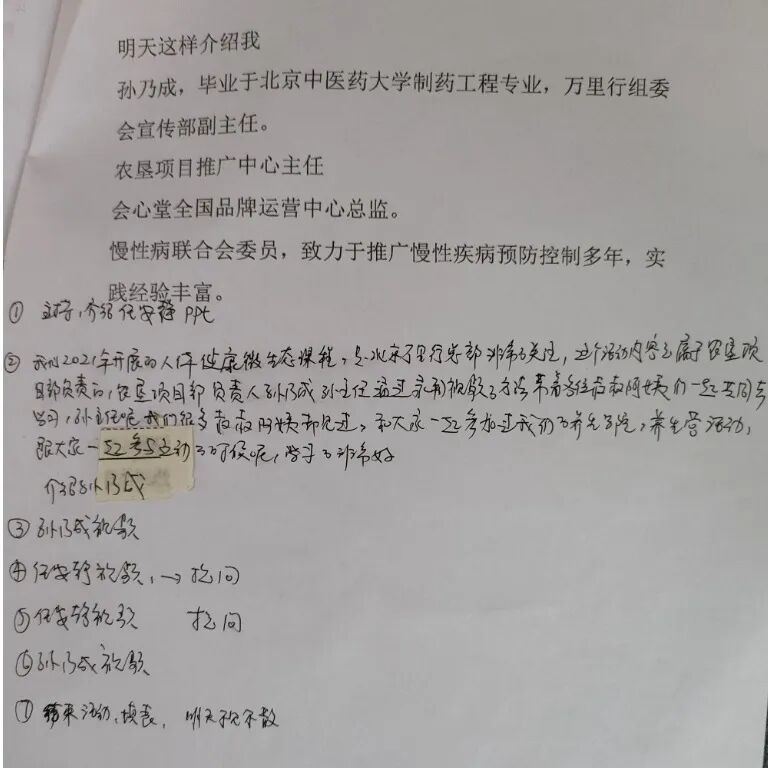 明天这样介绍我
孙乃成，毕业于北京中医药大学制药工程专业，万里行组委
会宣传部副主任。
农垦项目推广中心主任
会心堂全国品牌运营中心总监。
慢性病联合会委员，致力于推广慢性疾病预防控制多年，实
践经验丰富。
① 主持，介绍任安静 PPt
② 我们2021年开展的人体健康微生态课程，是北京万里行总部非常关注，这个活动内容也属于农垦项
目部负责的，农垦项目部负责人孙乃成孙主任通过录制视频的方法带着各位叔叔阿姨们一起共同去
学习，孙主任呢我们很多叔叔阿姨都见过，和大家一起参加过我们的养生学院，养生营活动，
跟大家一起参与互动的时候呢，学习的非常好
介绍孙乃成
③ 孙乃成视频
④ 任安静视频，→ 提问
⑤ 任安静视频 提问
⑥ 孙乃成视频
⑦ 结束活动、填表，明天不见不散